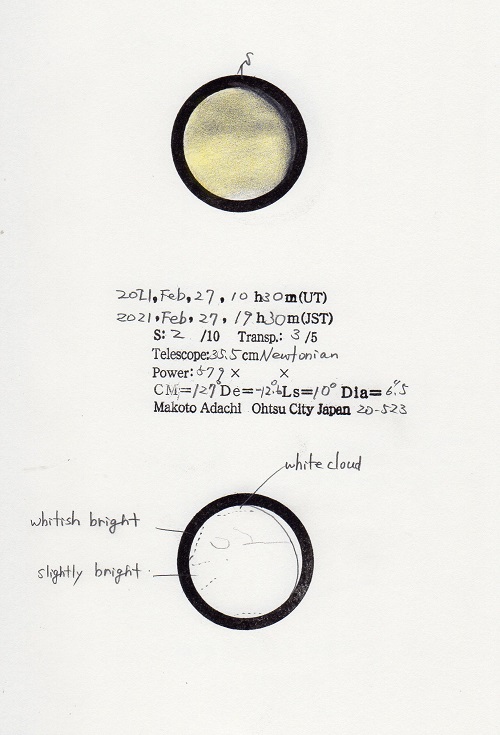 S
2021, Feb, 27, 10 h30m(UT)
2021, Feb, 27, 19 h30m(JST)
S: 2 /10 Transp.: 3 /5
Telescope:35.5cm Newtonian
Power: 579 × ×
CM=127° De=-12.6° Ls=10° Dia= 6".5
Makoto Adachi Ohtsu City Japan 20-523
white cloud
whitish bright
slightly bright